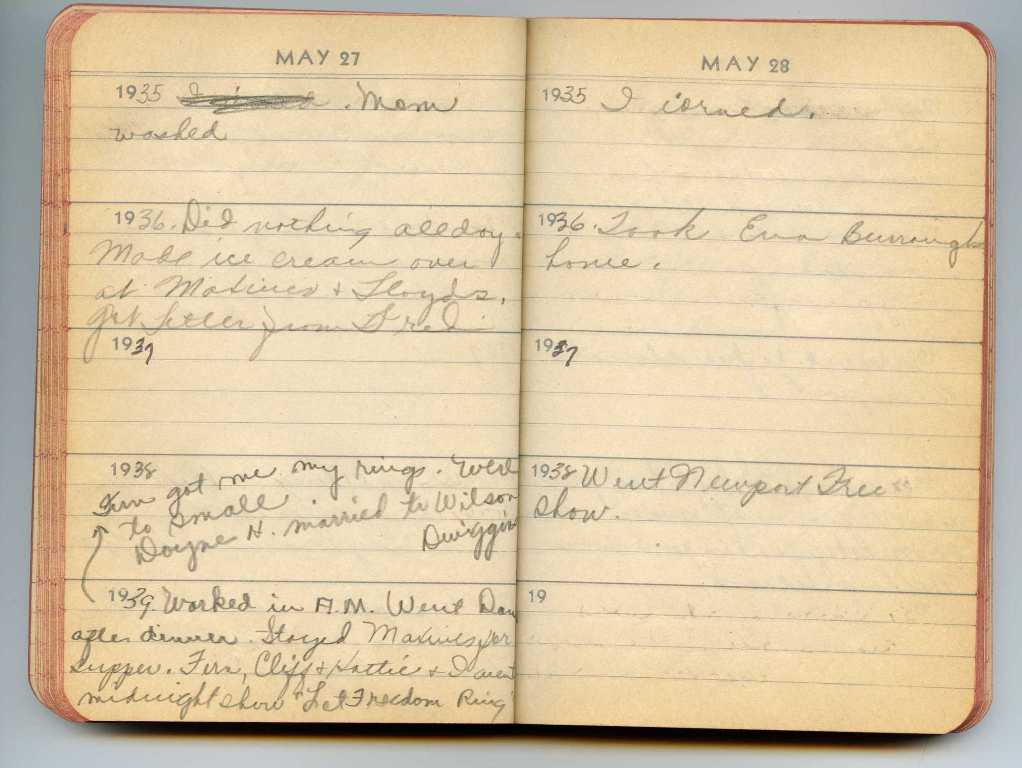 MAY 27
1935 Mom
washed
1936. Did nothing all day.
Made ice cream over
at Maxines + Lloyds.
Got letter from Fred
1937
1938
Firm got me my rings. Were
to small.
Doyne H. married to Wilson
Dwiggin
1939 Worked in A.M. Went Dan
after dinner. Stayed Maxines for
supper. Firm, Cliff + Hattie + I went
midnight show "Let Freedom Ring"
MAY 28
1935 I iorned.
1936. Took Burrough
home.
1937
1938 Went Newport Free
Show.
19